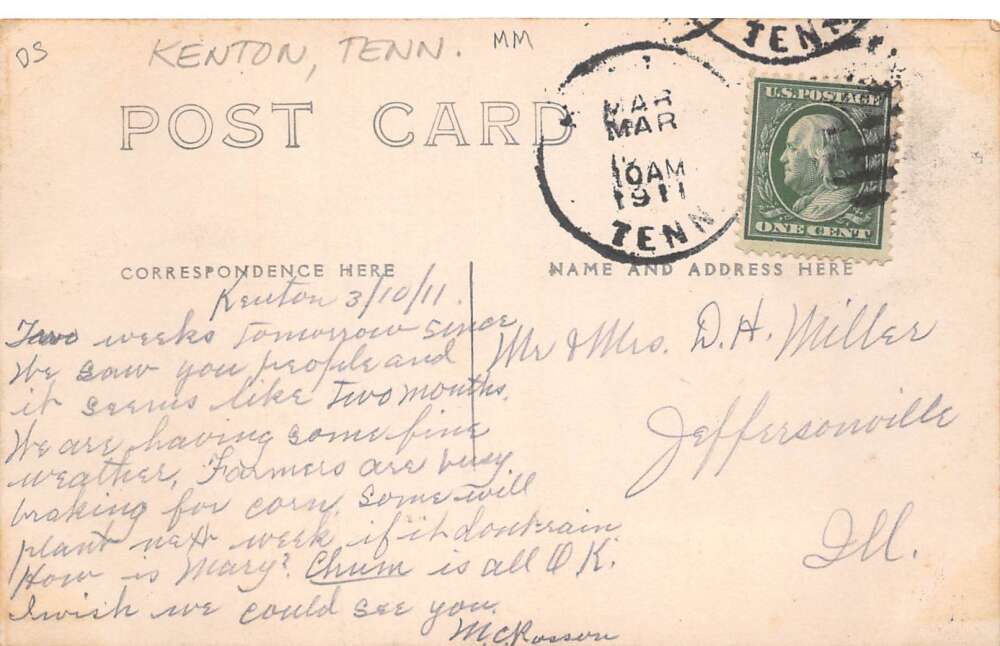 DS
KENTON, TENN.
MM
TENN
POST CARD
MAR
MAR
10AM
1911
TENN
U.S. POSTAGE
ONE CENT
CORRESPONDENCE HERE
NAME AND ADDRESS HERE
Kenton 3/10/11.
Two weeks tomorrow since
we saw you people and
it seems like two months.
We are having some fine
weather. Farmers are busy
braking for corn. Some will
plant next week if it dont rain
How is Mary? Chum is all O K.
I wish we could see you.
Mr & Mrs. D. H. Miller
Jeffersonville
Ill.